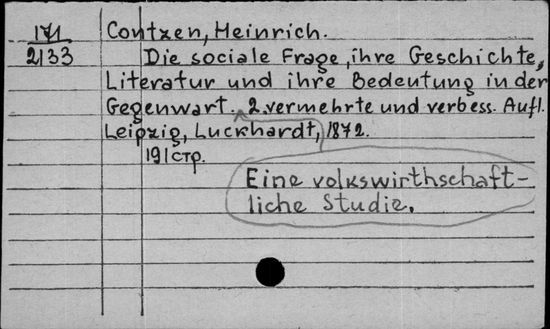 171
2133
Contzen, Heinrich.
Die sociale Frage, ihre Geschichte,
Literatur und ihre Bedeutung in der
Gegenwart. 2. vermehrte und verbess. Aufl.
Leipzig, Luckhardt, 1872.
191 стр.
Eine volkswirthschaft-
liche Studie.